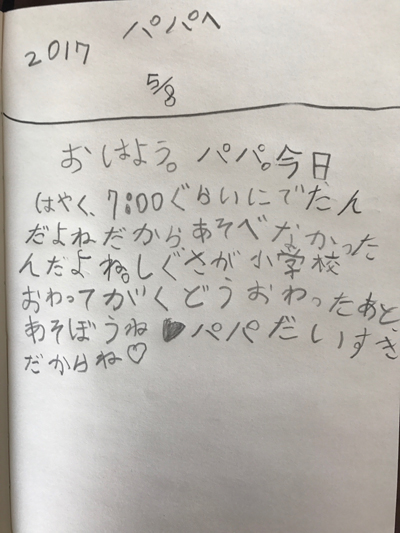 パパへ
2017
5/8
おはよう。パパ。今日
はやく、7:00ぐらいにでたん
だよねだから、あそべなかった
んだよね。しぐさが小学校
おわってがくどうおわったあと、
あそぼうね♥パパだいすき
だからね♡